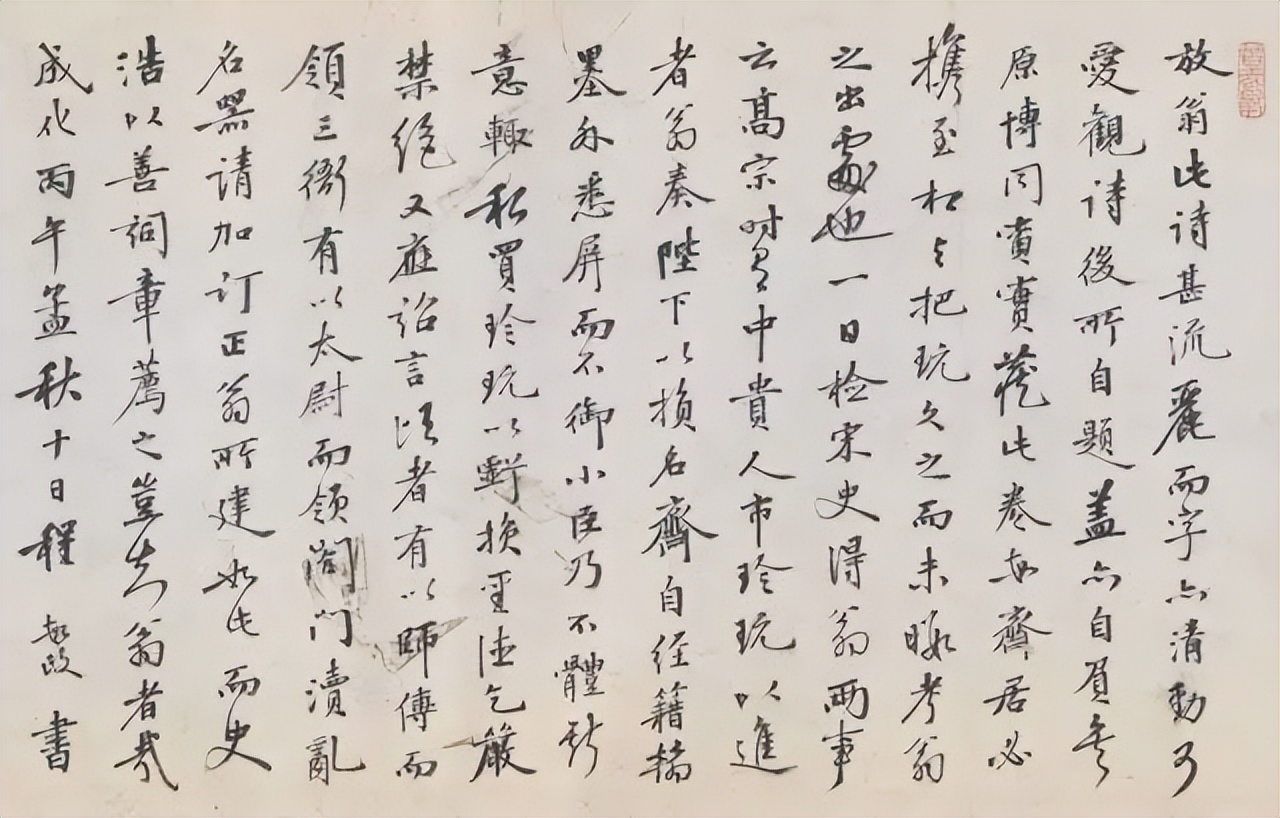 放翁此诗甚流麗而字亦清勁可
愛觀诗後所自題盖亦自負矣
原博同寅寶藏此卷每齋居必
攜至相与把玩久之而未暇考翁
之出處也一日检宋史得翁两事
云髙宗时有中贵人市珍玩以進
者翁奏陛下以损名齋自经籍翰
墨外悉屏而不御小臣乃不體聖
意輙私買珍玩以虧损圣德乞嚴
禁绝又應诏言顷者有以師傅而
領三衙有以太尉而领阁门瀆亂
名器请加订正翁所建如此而史
浩以善词章薦之豈知翁者哉
成化丙午孟秋十日程敏政書